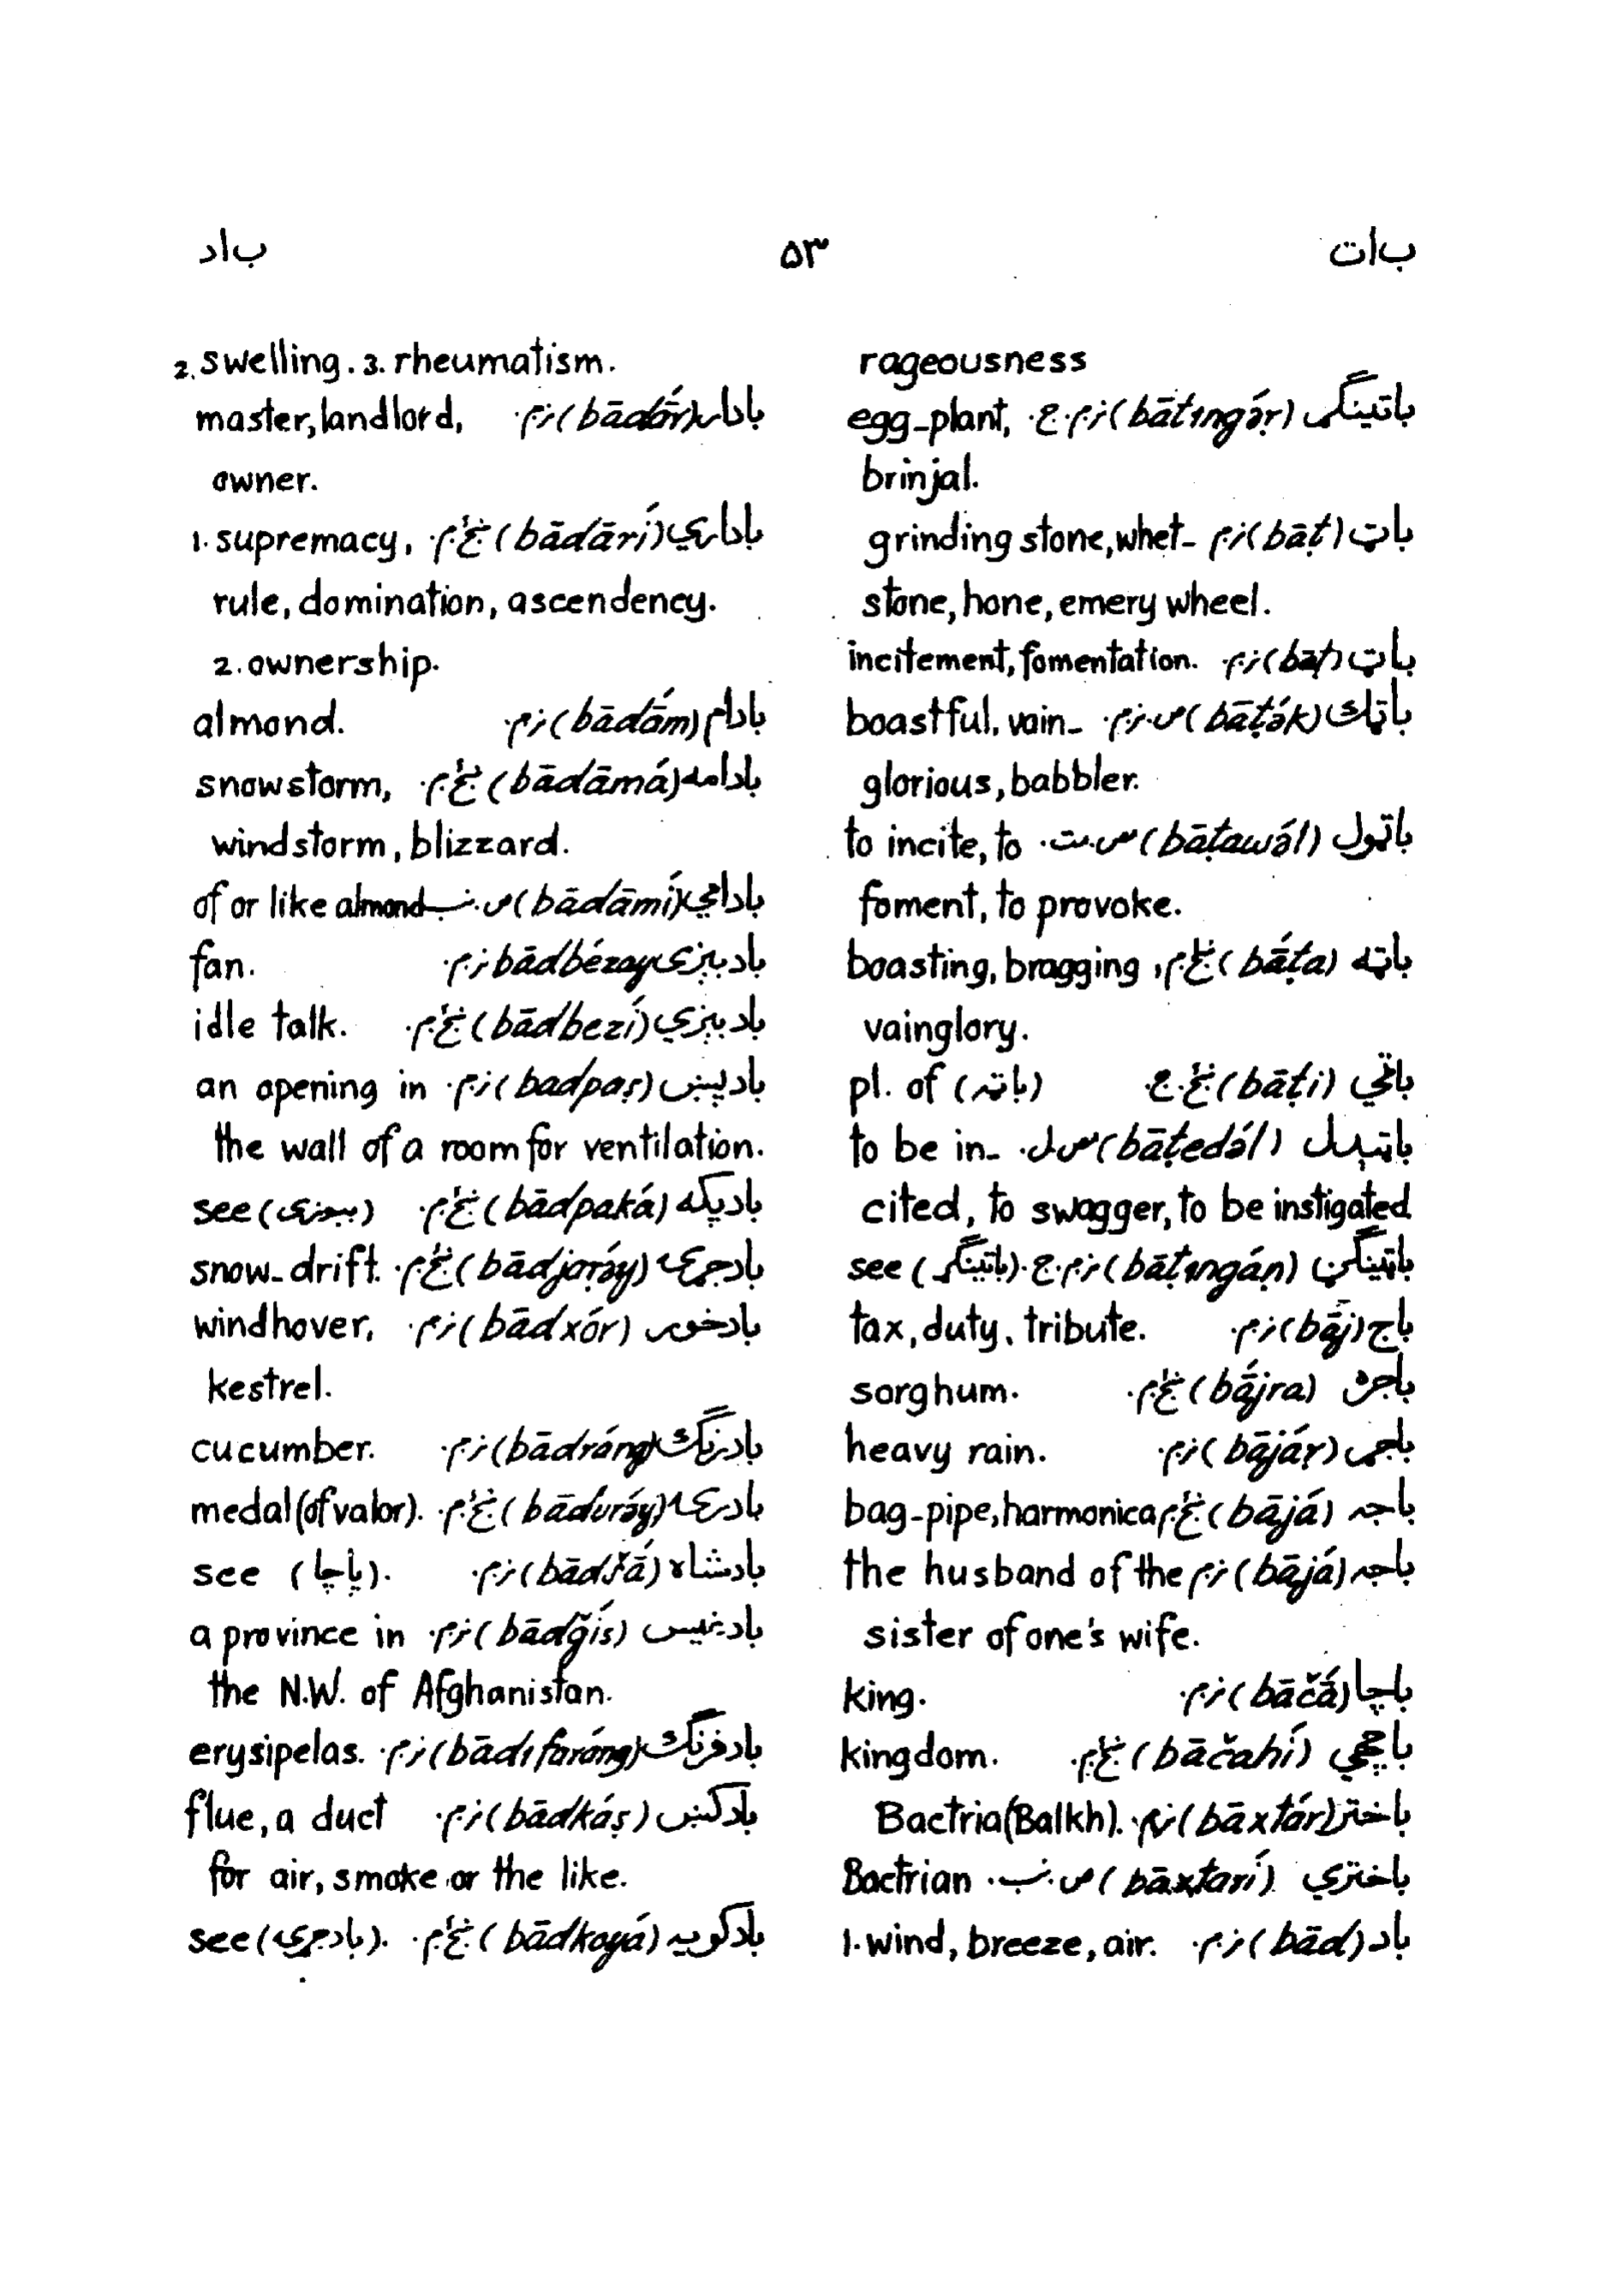 ب‌ات ۵۳ ب‌اد
rageousness
باتینګړ (bātıngə́ṛ) نر.م.ج. egg-plant,
brinjal.
باټ (bāṭ) نر.م. grinding stone, whet-
stone, hone, emery wheel.
باټ (bāṭ) نر.م. incitement, fomentation.
باټک (bāṭə́k) ص.نر.م. boastful, vain-
glorious, babbler.
باټول (bāṭawə́l) مص.مت. to incite, to
foment, to provoke.
باټه (bā́ṭa) ښځ.م. boasting, bragging,
vainglory.
باټي (bāṭi) ښځ.ج. pl. of (باټه)
باټېدل (bāṭedə́l) مص.ل. to be in-
cited, to swagger, to be instigated.
باټینګڼ (bāṭıngáṇ) نر.م.ج. see (باتینګړ)
باج (bāj) نر.م. tax, duty, tribute.
باجره (bā́jra) ښځ.م. sorghum.
باجړ (bājáṛ) نر.م. heavy rain.
باجه (bājá) ښځ.م. bag-pipe, harmonica
باجه (bājá) نر.م. the husband of the
sister of one's wife.
باچا (bāčā́) نر.م. king.
باچهي (bāčahí) ښځ.م. kingdom.
باختر (bāxtár) نر.م. Bactria (Balkh).
باختري (bāxtarí) ص.نب. Bactrian
باد (bād) نر.م. 1. wind, breeze, air.
2. swelling. 3. rheumatism.
بادار (bādā́r) نر.م. master, landlord,
owner.
باداري (bādārí) ښځ.م. 1. supremacy,
rule, domination, ascendency.
2. ownership.
بادام (bādā́m) نر.م. almond.
بادامه (bādāmá) ښځ.م. snowstorm,
windstorm, blizzard.
بادامي (bādāmí) ص.نب. of or like almond
بادبېزی bādbézay نر.م. fan.
بادبېزي (bādbezí) ښځ.م. idle talk.
بادپښ (badpaṣ) نر.م. an opening in
the wall of a room for ventilation.
بادپکه (bādpaká) ښځ.م. see (ببوزی)
بادجړۍ (bādjaṛə́y) ښځ.م. snow-drift.
بادخور (bādxór) نر.م. windhover,
kestrel.
بادرنګ (bādráng) نر.م. cucumber.
بادرۍ (bādurə́y) ښځ.م. medal (of valor).
بادشاه (bādšā́) نر.م. see (پاچا).
بادغیس (bādğís) نر.م. a province in
the N.W. of Afghanistan.
بادفرنګ (bādıfaráng) نر.م. erysipelas.
بادکښ (bādkáṣ) نر.م. flue, a duct
for air, smoke or the like.
بادکویه (bādkoyá) ښځ.م. see (بادجړۍ).